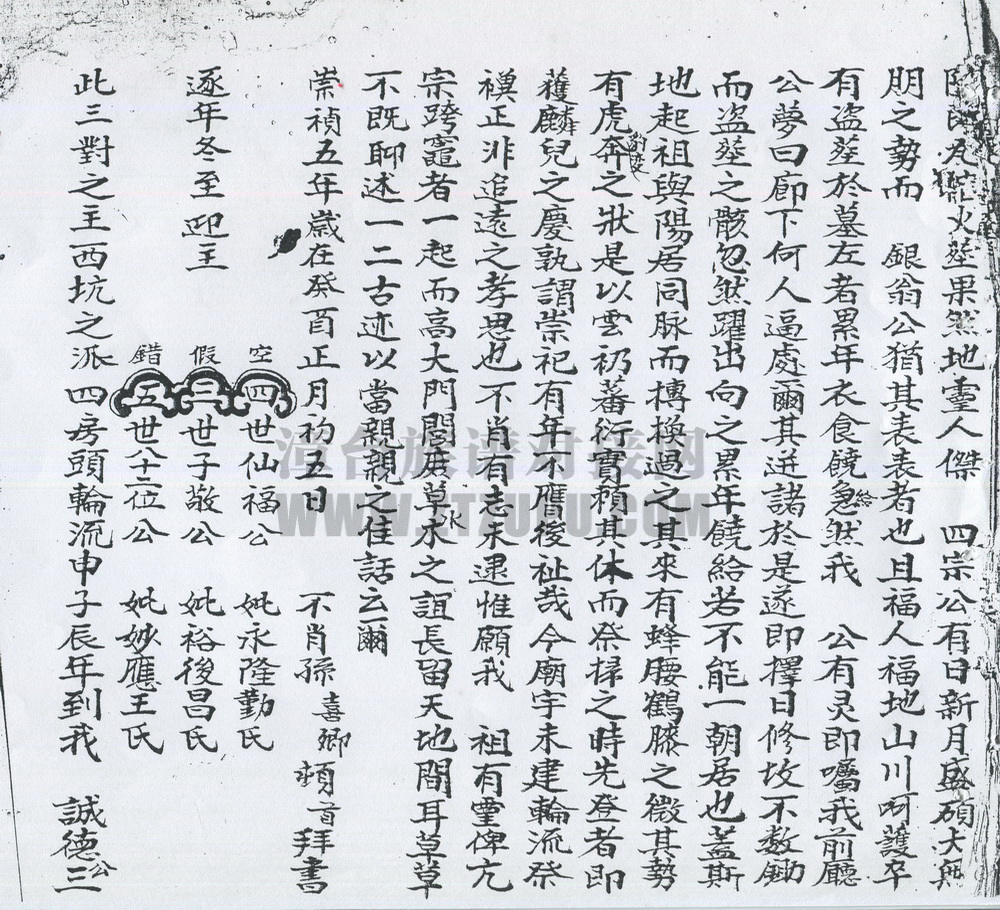 火塋果然地靈人傑 四宗公有日新月盛碩大無
朋之勢而 銀翁公猶其表表者也且福人福地山川呵護卒
有盜塋於墓左者累年衣食饒急給然我 公有灵即囑我前廳
公夢曰廊下何人逼處爾其迸諸於是遂即擇日修坟不数鋤
而盗塋之骸忽然躍出向之累年饒給若不能一朝居也蓋斯
地起祖與陽居同脉而摶換過之其來有蜂腰鶴膝之微其勢
有虎奔之狀是以雲礽蕃衍實賴其休而祭掃之時先登者即
獲麟兒之慶孰謂崇祀有年不膺後祉哉今廟宇未建輪流祭
禩正非追遠之孝思也不肖有志未逮惟願我 祖有靈俾亢
宗跨竈者一起而高大門閭庶草木水之誼長留天地間耳草草
不既聊述一二古迹以當親親之佳話云爾
崇禎五年歲在癸酉正月初五日 不肖孫喜卿頓首拜書
逐年冬至迎主 空四世仙福公 妣永隆勤氏
假三世子敬公 妣裕後昌氏
錯五世八十二位公 妣妙應王氏
此三對之主西坑之派四房頭輪流申子辰年到我 誠德公三
澶台族谱对接网
WWW.TTZUPU.COM